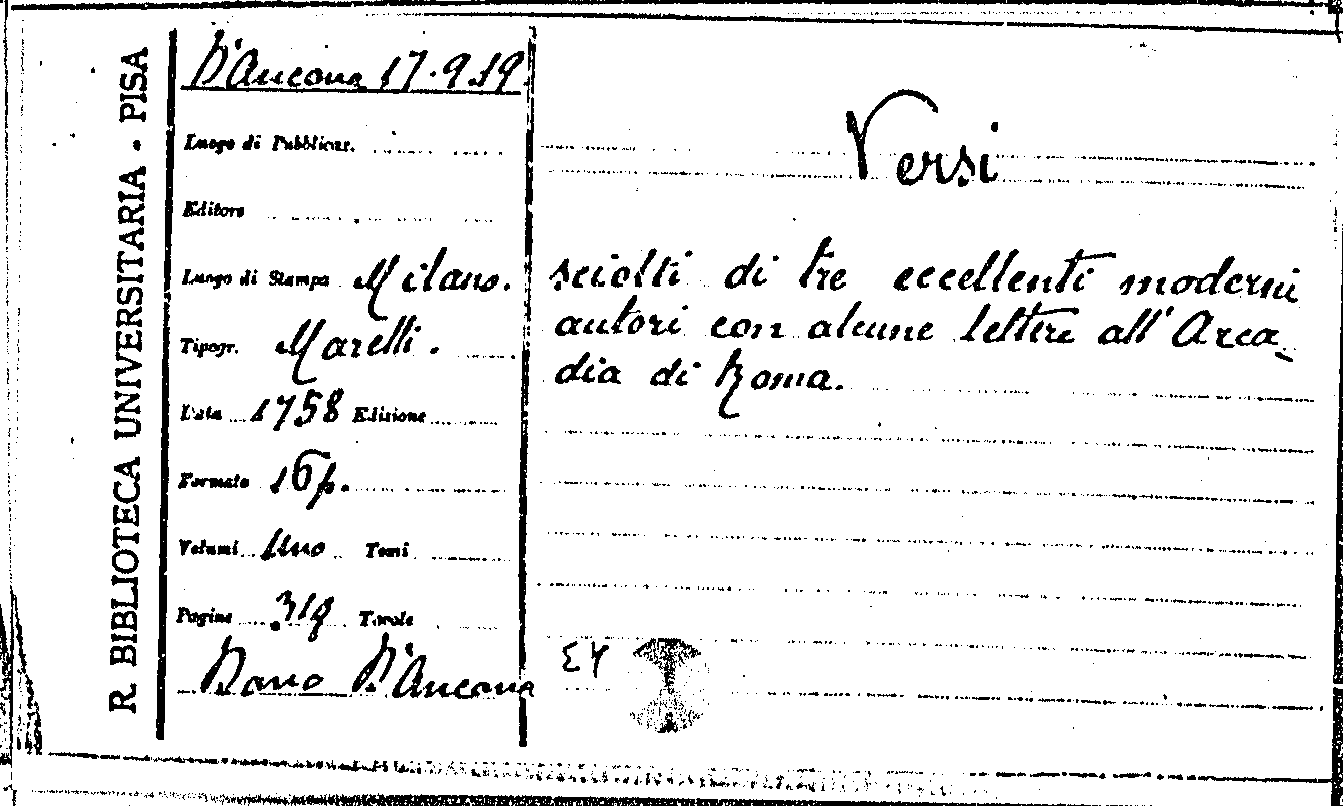 R. BIBLIOTECA UNIVERSITARIA - PISA
D'Ancona 17.9.19.
Luogo di Pubblicaz.
Editore
Luogo di Stampa Milano.
Tipogr. Marelli.
Data 1758 Edizione
Formato 16p.
Volumi Uno Tomi
Pagine 319 Tavole
Dono D'Ancona
Versi
sciolti di tre eccellenti moderni
autori con alcune lettere all'Arca-
dia di Roma.